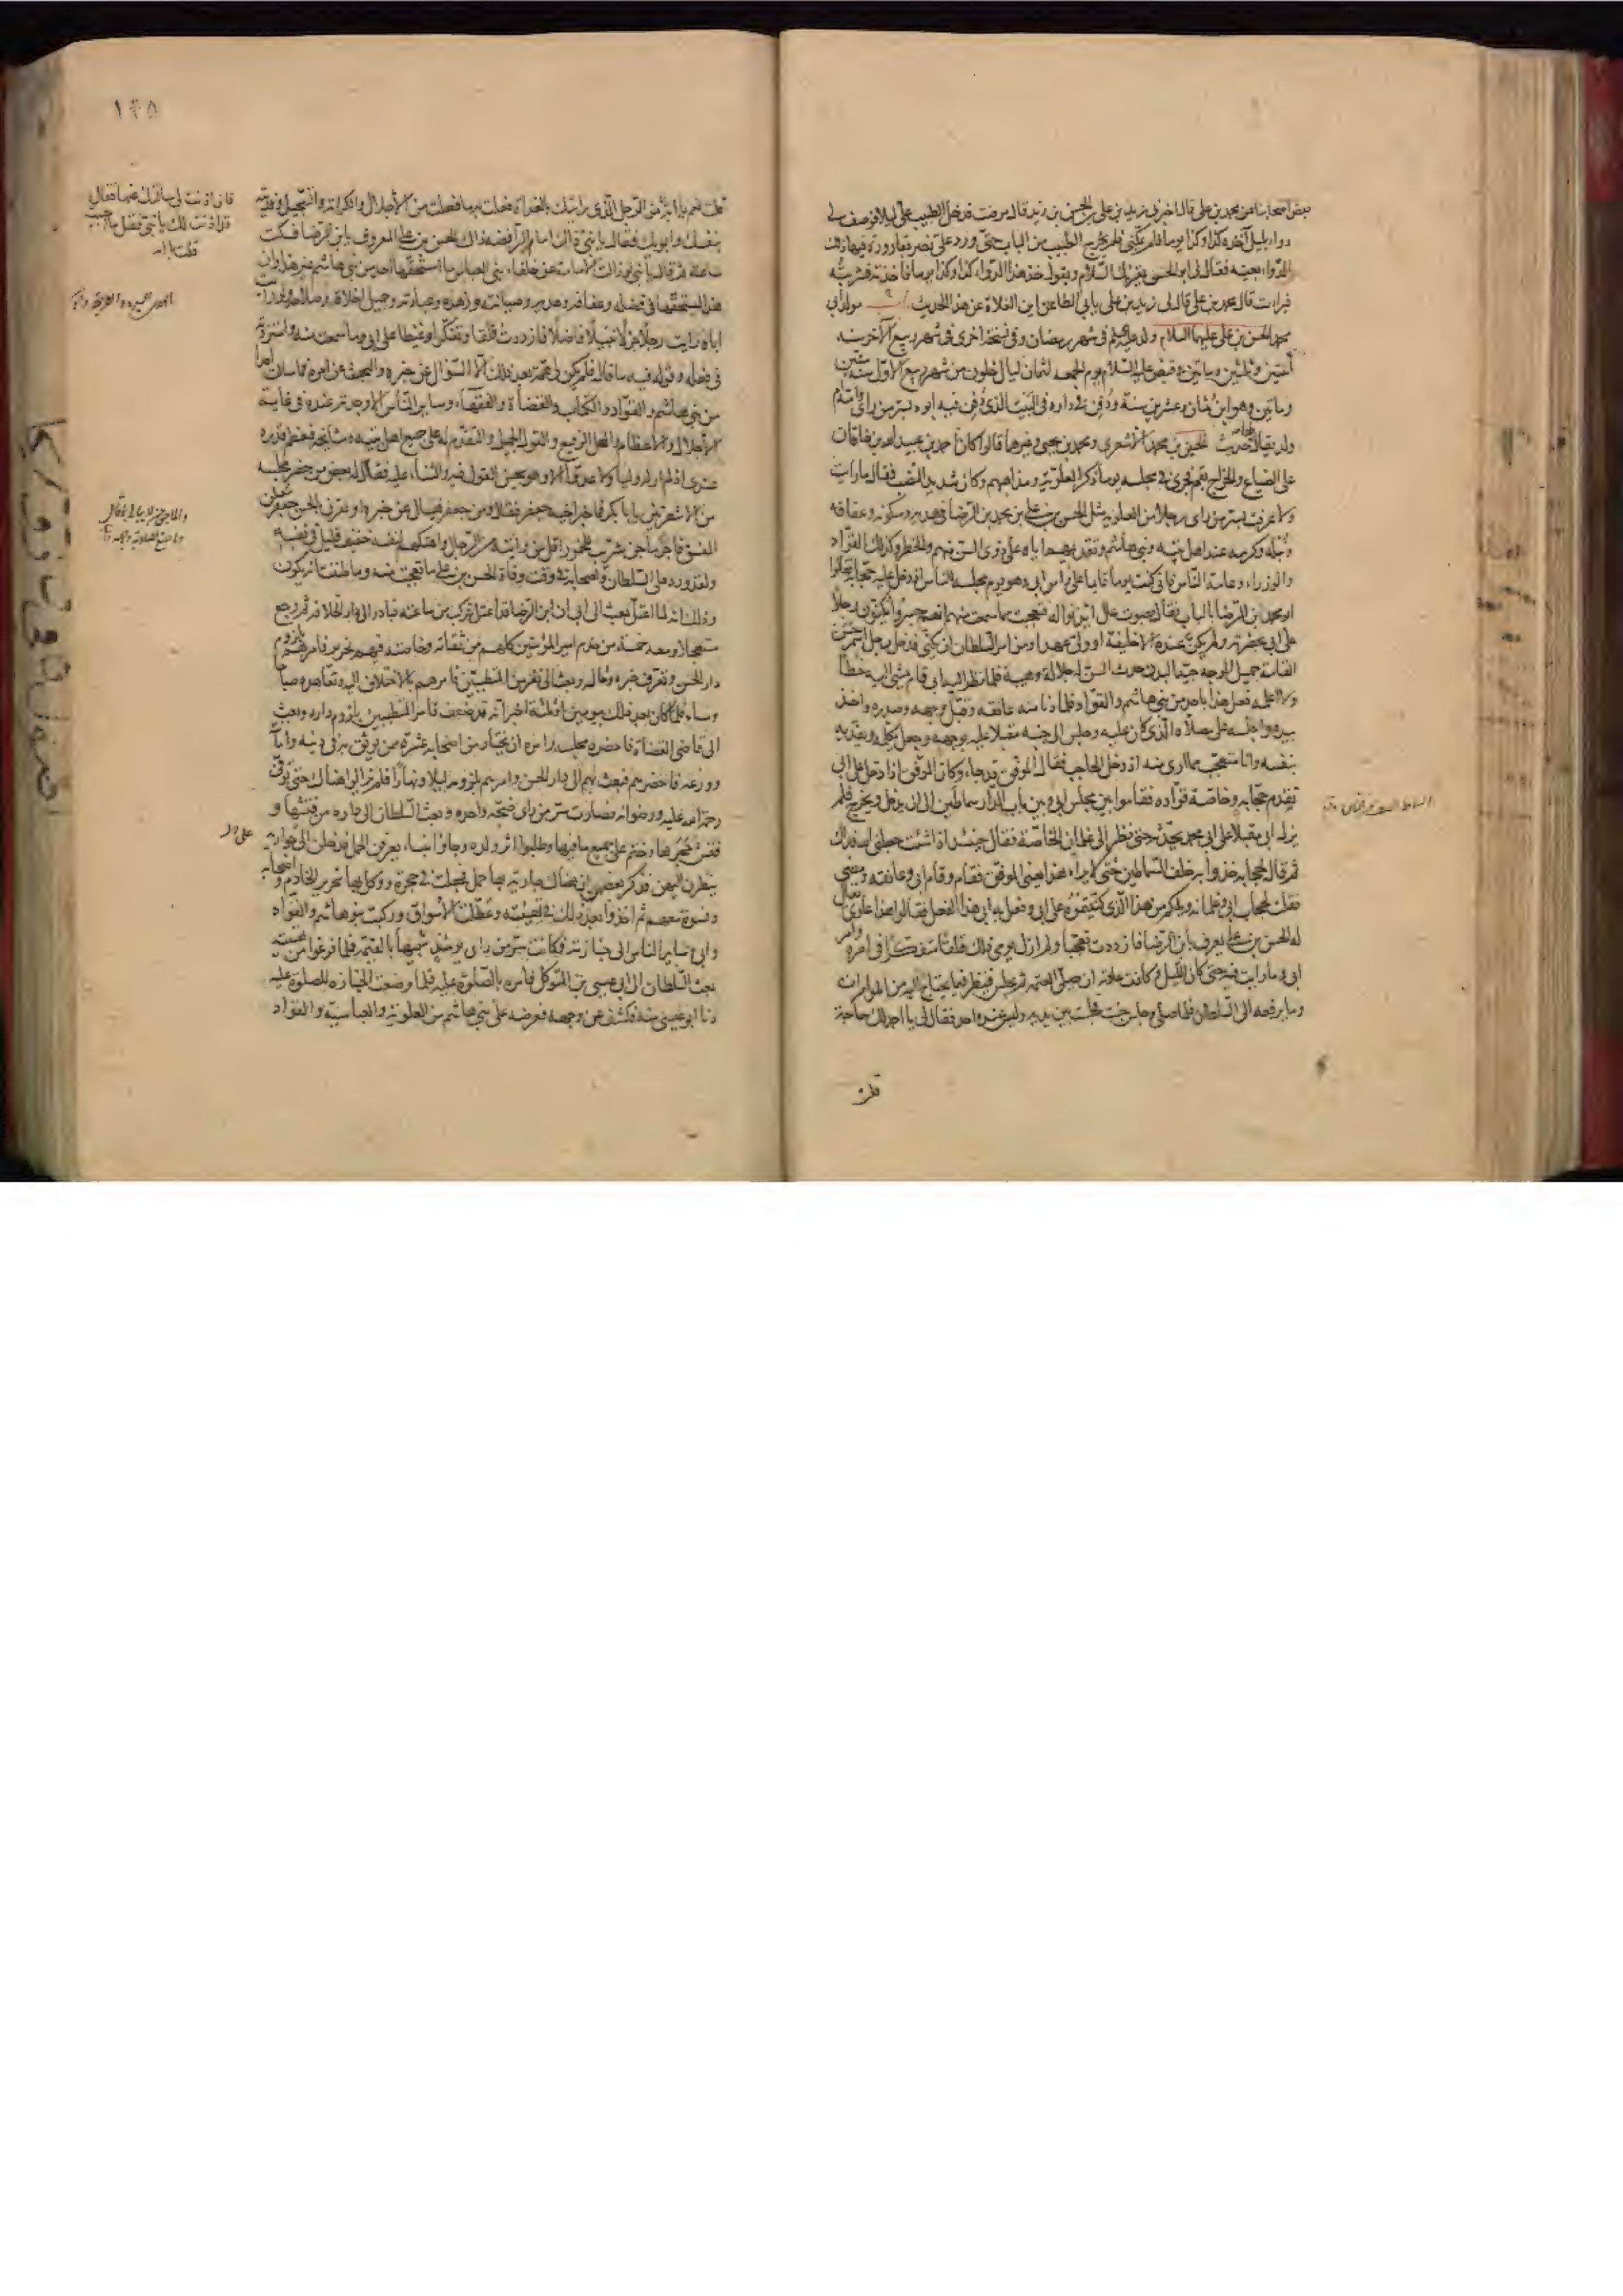 بعض اصحابنا عن محمد بن علي قال اخبرني زيد بن علي بن الحسن بن زيد قال مرضت فدخل الطبيب علي ليلا فوصف لي
دواء بليل آخذه كذا وكذا يوما فلم يمكني فلم يخرج الطبيب من الباب حتى ورد علي نصر بقارورة فيها ذلك
الدواء بعينه فقال لي ابو الحسن يقرئك السلام ويقول خذ هذا الدواء كذا وكذا يوما فاخذته فشربته
فبرأت قال محمد بن علي قال لي زيد بن علي يأبى الطاعن اين الغلاة عن هذا الحديث باب مولد ابي
محمد الحسن بن علي عليهما السلام ولد عليه السلم في شهر رمضان وفي نسخة اخرى في شهر ربيع الآخر سنة
اثنتين وثلثين ومأتين وقبض عليه السلام يوم الجمعة لثمان ليال خلون من شهر ربيع الاول سنة ستين
ومأتين وهو ابن ثمان وعشرين سنة ودفن في داره في البيت الذي دفن فيه ابوه بسر من رأى وامه ام
ولد يقال لها حديث الحسين بن محمد الاشعري ومحمد بن يحيى وغيرهما قالوا كان احمد بن عبيد الله بن خاقان
على الضياع والخراج بقم فجرى في مجلسه يوما ذكر العلوية ومذاهبهم وكان شديد النصب فقال ما رأيت
ولا عرفت بسر من رأى رجلا من العلوية مثل الحسن بن علي بن محمد بن الرضا في هديه وسكونه وعفافه
ونبله وكرمه عند اهل بيته وبني هاشم وتقديمهم اياه على ذوي السن منهم والخطر وكذلك القواد
والوزراء وعامة الناس فاني كنت يوما قايما على رأس ابي وهو يوم مجلسه للناس اذ دخل عليه حجابه فقالوا
ابو محمد ابن الرضا بالباب فقال بصوت عال ائذنوا له فتعجبت مما سمعت منهم انهم جسروا يكنون رجلا
على ابي بحضرته ولم يكن عنده الا خليفة او ولي عهد او من امر السلطان ان يكنى فدخل رجل اسمر حسن
القامة جميل الوجه جيد البدن حدث السن له جلالة وهيبة فلما نظر اليه ابي قام يمشي اليه خطا
ولا اعلمه فعل هذا باحد من بني هاشم والقواد فلما دنا منه عانقه وقبل وجهه وصدره واخذ
بيده واجلسه على مصلاه الذي كان عليه وجلس الى جنبه مقبلا عليه بوجهه وجعل يكلمه ويفديه
بنفسه وانا متعجب مما ارى منه اذ دخل الحاجب فقال الموفق قد جاء وكان الموفق اذا دخل على ابي
تقدم حجابه وخاصة قواده فقاموا بين مجلس ابي وبين باب الدار سماطين الى ان يدخل ويخرج فلم
يزل ابي مقبلا على ابي محمد يحدثه حتى نظر الى غلمان الخاصة فقال حينئذ اذا شئت جعلني الله فداك
ثم قال لحجابه خذوا به خلف السماطين حتى لا يراه هذا يعني الموفق فقام وقام ابي وعانقه ومضى
فقلت لحجاب ابي وغلمانه ويلكم من هذا الذي كنيتموه على ابي وفعل به ابي هذا الفعل فقالوا هذا علوي يقال
له الحسن بن علي يعرف بابن الرضا فازددت تعجبا ولم ازل يومي ذلك قلقا متفكرا في امره وامر
ابي وما رأيت فيه حتى كان الليل وكانت عادته ان يصلي العتمة ثم يجلس فينظر فيما يحتاج اليه من المؤامرات
وما يرفعه الى السلطان فلما صلى وجلس جئت فجلست بين يديه وليس عنده احد فقال لي يا احمد لك حاجة
قلت
١٤٥
قلت نعم يا ابه من الرجل الذي رأيتك بالغداة فعلت به ما فعلت من الاجلال والكرامة والتبجيل وفديته
بنفسك وابويك فقال يا بني ذاك امام الرافضة ذاك الحسن بن علي المعروف بابن الرضا فسكت
ساعة ثم قال يا بني لو زالت الامامة عن خلفاء بني العباس ما استحقها احد من بني هاشم غير هذا وان
هذا ليستحقها في فضله وعفافه وهديه وصيانته وزهده وعبادته وجميل اخلاقه وصلاحه ولو رأيت
اباه رأيت رجلا جزلا نبيلا فاضلا فازددت قلقا وتفكرا وغيظا على ابي وما سمعت منه واستزدته
في فعله وقوله فيه ما قال فلم يكن لي همة بعد ذلك الا السؤال عن خبره والبحث عن امره فما سألت احدا
من بني هاشم والقواد والكتاب والقضاة والفقهاء وساير الناس الا وجدته عنده في غاية
الاجلال والاعظام والمحل الرفيع والقول الجميل والتقديم له على جميع اهل بيته ومشايخه فعظم قدره
عندي اذ لم ار له وليا ولا عدوا الا وهو يحسن القول فيه والثناء عليه فقال له بعض من حضر مجلسه
من الاشعريين يا ابا بكر فما خبر اخيه جعفر فقال ومن جعفر فيسأل عن خبره او يقرن بالحسن جعفر معلن
الفسق فاجر ماجن شريب للخمور اقل من رأيته من الرجال واهتكهم لنفسه خفيف قليل في نفسه
ولقد ورد على السلطان واصحابه في وقت وفاة الحسن بن علي ما تعجبت منه وما ظننت انه يكون
وذلك انه لما اعتل بعث الى ابي ان ابن الرضا قد اعتل فركب من ساعته فبادر الى دار الخلافة ثم رجع
مستعجلا ومعه خمسة من خدم امير المؤمنين كلهم من ثقاته وخاصته فيهم نحرير فامرهم بلزوم
دار الحسن وتعرف خبره وحاله وبعث الى نفر من المتطببين فامرهم بالاختلاف اليه وتعاهده صباحا
ومساء فلما كان بعد ذلك بيومين او ثلثة اخبر انه قد ضعف فامر المتطببين بلزوم داره وبعث
الى قاضي القضاة فاحضره مجلسه وامره ان يختار من اصحابه عشرة ممن يوثق به في دينه وامانته
وورعه فاحضرهم فبعث بهم الى دار الحسن وامرهم بلزومه ليلا ونهارا فلم يزالوا هناك حتى توفي
رحمة الله عليه ورضوانه فصارت سر من رأى ضجة واحدة وبعث السلطان الى داره من فتشها و
فتش حجرها وختم على جميع ما فيها وطلبوا اثر ولده وجاؤا بنساء يعرفن الحمل فدخلن الى جواريه
ينظرن اليهن فذكر بعضهن ان هناك جارية بها حمل فجعلت في حجرة ووكل بها نحرير الخادم واصحابه
ونسوة معهم ثم اخذوا بعد ذلك في تهيئته وعطلت الاسواق وركبت بنو هاشم والقواد
وابي وساير الناس الى جنازته فكانت سر من رأى يومئذ شبيها بالقيمة فلما فرغوا من تهيئته
بعث السلطان الى ابي عيسى بن المتوكل فامره بالصلوة عليه فلما وضعت الجنازة للصلوة عليه
دنا ابو عيسى منه فكشف عن وجهه فعرضه على بني هاشم من العلوية والعباسية والقواد
فان اذنت لي سألتك عنها فقال
قد اذنت لك يا بني فقل ما احببت
قلت يا ابه